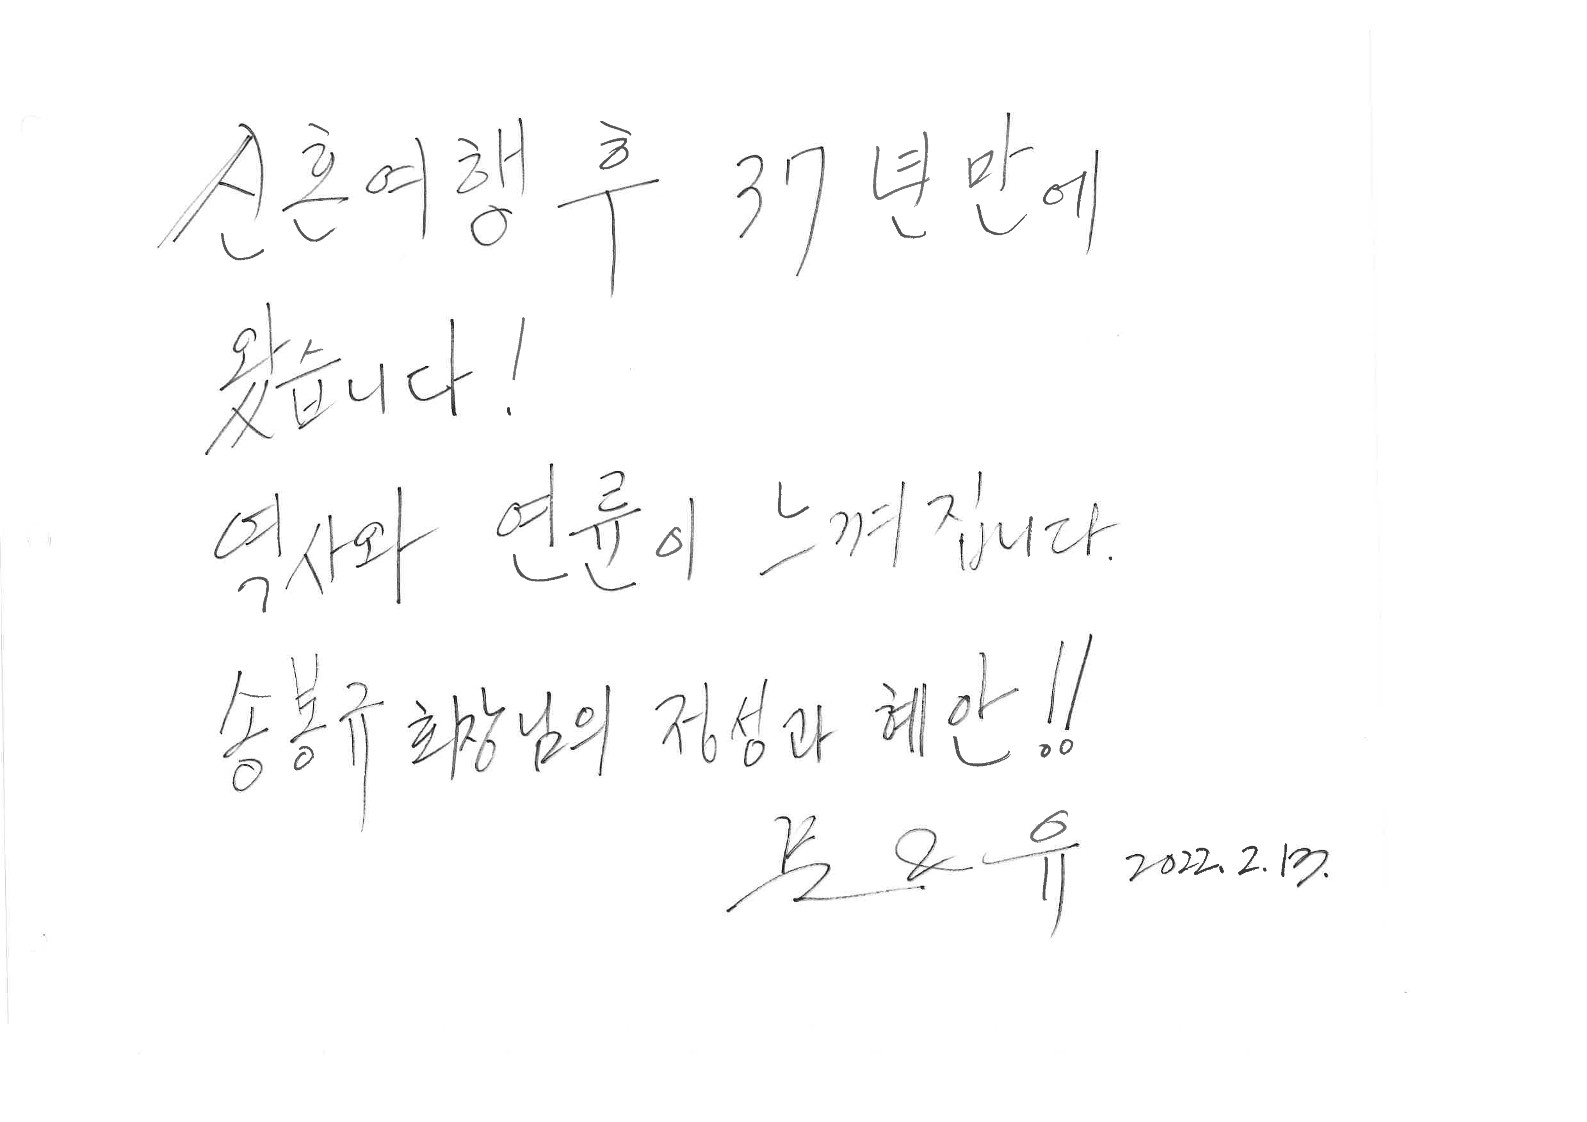 신혼여행 후 37년만에
왔습니다!
역사와 연륜이 느껴집니다.
송봉규 회장님의 정성과 혜안!!
2022. 2. 13.